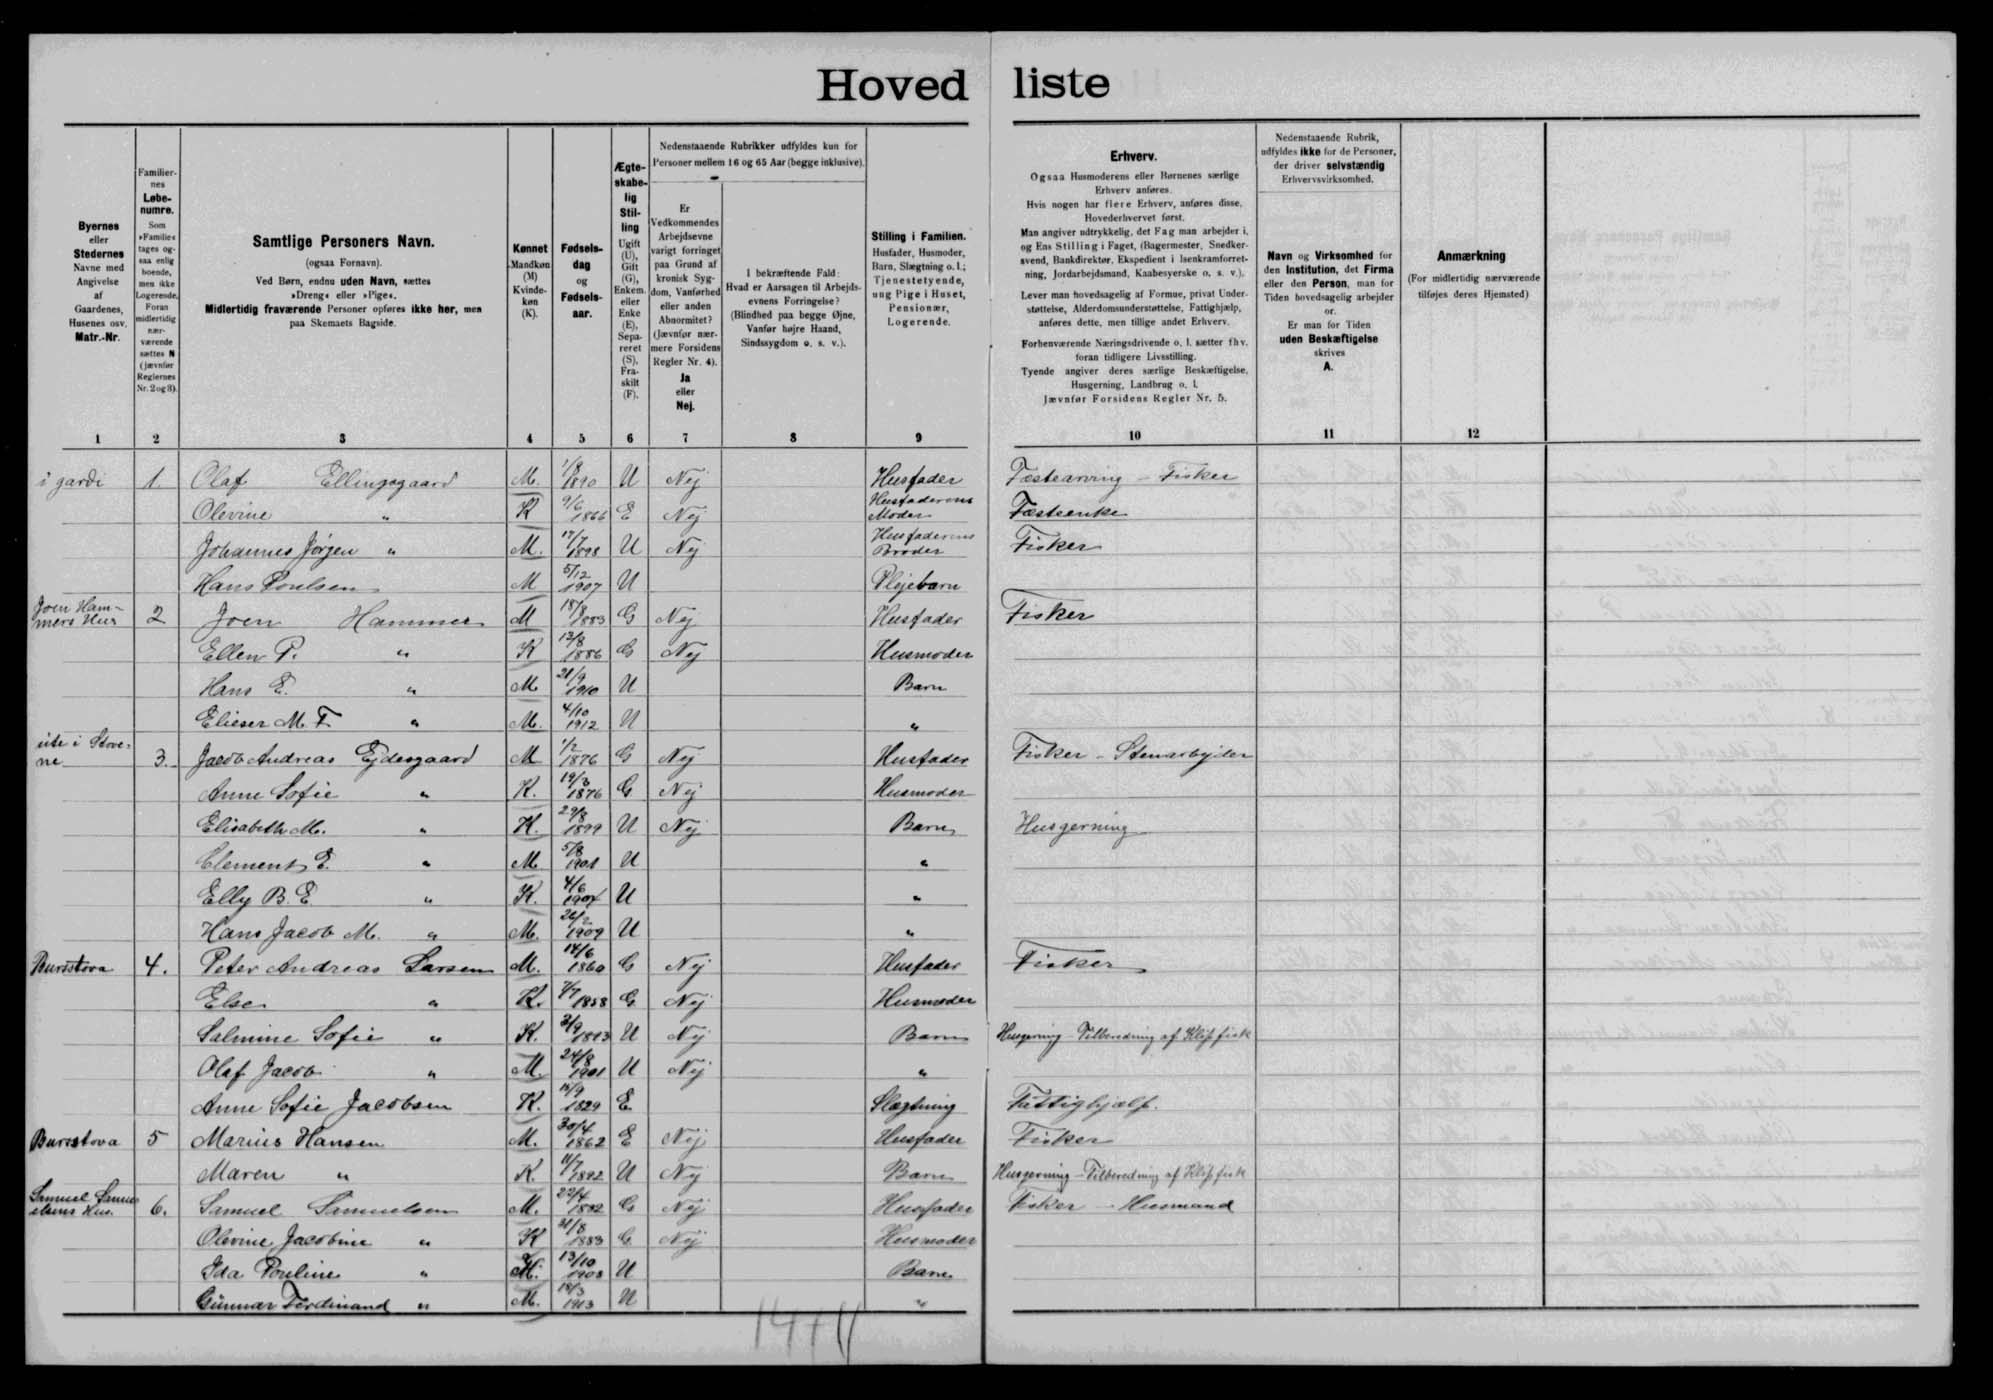 Hoved liste
Byernes
eller
Stedernes
Navne med
Angivelse
af
Gaardenes,
Husenes osv.
Matr.-Nr.
Familier-
nes
Løbe-
numre.
Som
»Familie«
tages og-
saa enlig
boende,
men ikke
Logerende.
Foran
midlertidig
nær-
værende
sættes N
(jævnfør
Reglernes
Nr. 2 og 3).
Samtlige Personers Navn.
(ogsaa Fornavn).
Ved Børn, endnu uden Navn, sættes
»Dreng« eller »Pige«.
Midlertidig fraværende Personer opføres ikke her, men
paa Skemaets Bagside.
Kønnet
Mandkøn
(M)
Kvinde-
køn
(K).
Fødsels-
dag
og
Fødsels-
aar.
Ægte-
skabe-
lig
Stil-
ling
Ugift
(U),
Gift
(G),
Enkem.
eller
Enke
(E),
Sepa-
reret
(S).
Fra-
skilt
(F).
Nedenstaaende Rubrikker udfyldes kun for
Personer mellem 16 og 65 Aar (begge inklusive).
Er
Vedkommendes
Arbejdsevne
varigt forringet
paa Grund af
kronisk Syg-
dom, Vanførhed
eller anden
Abnormitet?
(Jævnfør nær-
mere Forsidens
Regler Nr. 4).
Ja
eller
Nej.
I bekræftende Fald:
Hvad er Aarsagen til Arbejds-
evnens Forringelse?
(Blindhed paa begge Øjne,
Vanfør højre Haand,
Sindssygdom o. s. v.).
Stilling i Familien.
Husfader, Husmoder,
Barn, Slægtning o. l.;
Tjenestetyende,
ung Pige i Huset,
Pensionær,
Logerende.
Erhverv.
Ogsaa Husmoderens eller Børnenes særlige
Erhverv anføres.
Hvis nogen har flere Erhverv, anføres disse,
Hovederhvervet først.
Man angiver udtrykkelig, det Fag man arbejder i,
og Ens Stilling i Faget, (Bagermester, Snedker-
svend, Bankdirektør, Ekspedient i Isenkramforret-
ning, Jordarbejdsmand, Kaabesyerske o. s. v.).
Lever man hovedsagelig af Formue, privat Under-
støttelse, Alderdomsunderstøttelse, Fattighjælp,
anføres dette, men tillige andet Erhverv.
Forhenværende Næringsdrivende o. l. sætter fhv.
foran tidligere Livsstilling.
Tyende angiver deres særlige Beskæftigelse,
Husgerning, Landbrug o. l.
Jævnfør Forsidens Regler Nr. 5.
Nedenstaaende Rubrik,
udfyldes ikke for de Personer,
der driver selvstændig
Erhvervsvirksomhed.
Navn og Virksomhed for
den Institution, det Firma
eller den Person, man for
Tiden hovedsagelig arbejder
for.
Er man for Tiden
uden Beskæftigelse
skrives
A.
Anmærkning
(For midlertidig nærværende
tilføjes deres Hjemsted)
1 2 3 4 5 6 7 8 9 10 11 12
i gardi 1. Olaf Ellingsgaard M. 1/9 1890 U Nej Husfader Fæstearving - Fisker
Olevine " K 9/6 1866 E Nej Husfaderens Moder Fæsteenke
Johannes Jørgen " M. 17/7 1898 U Nej Husfaderens Broder Fisker
Hans Poulsen M 5/12 1907 U Plejebarn
Joen Ham-
mers Hus 2 Joen Hammer M 18/8 1883 G Nej Husfader Fisker
Ellen P. " K 13/8 1886 G Nej Husmoder
Hans E. " M 21/9 1910 U Barn
Elieser M. F. " M. 4/10 1912 U "
úti i Stove-
ne 3. Jacob Andreas Ejdesgaard M 1/2 1876 G Nej Husfader Fisker - Stenarbejder
Anne Sofie " K. 19/3 1876 G Nej Husmoder
Elisabeth M. " K. 29/8 1899 U Nej Barn Husgerning
Clement E. " M 5/8 1901 U "
Elly B. E. " K. 4/6 1904 U "
Hans Jacob M. " M. 26/2 1909 U "
Burstova 4. Peter Andreas Larsen M. 14/6 1860 G Nej Husfader Fisker
Else " K. 7/7 1858 G Nej Husmoder
Salmine Sofie " K. 3/9 1893 U Nej Barn Husgerning - Tilberedning af Klipfisk
Olaf Jacob " M. 24/8 1901 U Nej "
Anne Sofie Jacobsen K. 15/9 1829 E Slægtning Fattighjælp.
Burestova 5 Marius Hansen M. 30/4 1862 E Nej Husfader Fisker
Maren " K. 11/7 1892 U Nej Barn Husgerning - Tilberedning af Klipfisk
Samuel Samu-
elsens Hus. 6. Samuel Samuelsen M. 22/4 1882 G Nej Husfader Fisker - Husmand
Olevine Jacobine " K 21/8 1883 G Nej Husmoder
Ida Pouline " K. 13/10 1908 U Barn
Gunnar Ferdinand " M. 19/3 1913 U "
14+11